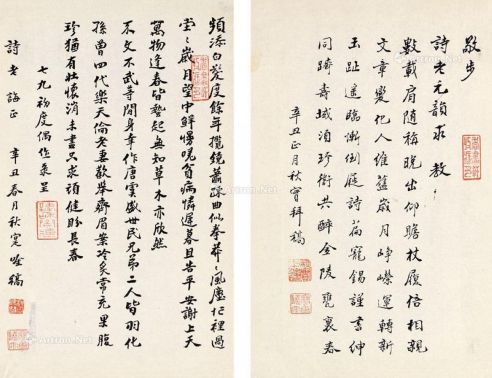 敬步
詩老元韻求教
數載肩隨稱晚出仰瞻杖履倍相親
文章變化人維舊歲月崢嶸運轉新
玉趾遙臨漸倒屣詩篇寵錫謹書紳
同躋壽域須珍衛共醉金陵甕裏春
辛丑正月秋 拜稿
頻添白髮度餘年攬鏡蕭疎曲似拳莽莽風塵忙裏過
堂堂歲月望中鮮 貧病憐遲暮且告平安謝上天
萬物逢春皆 起無知草木亦欣然
不文不武等閒身幸作唐虞盛世民兄弟二人皆羽化
孫曾四代樂天倫老妻歡舉齊眉案冷炙常充果腹
珍猶有壯懷消未盡只求頑健盼長春
七九初度偶作錄呈
詩老誨正 辛丑春月秋 稿
Artron.Net
Artron.Net